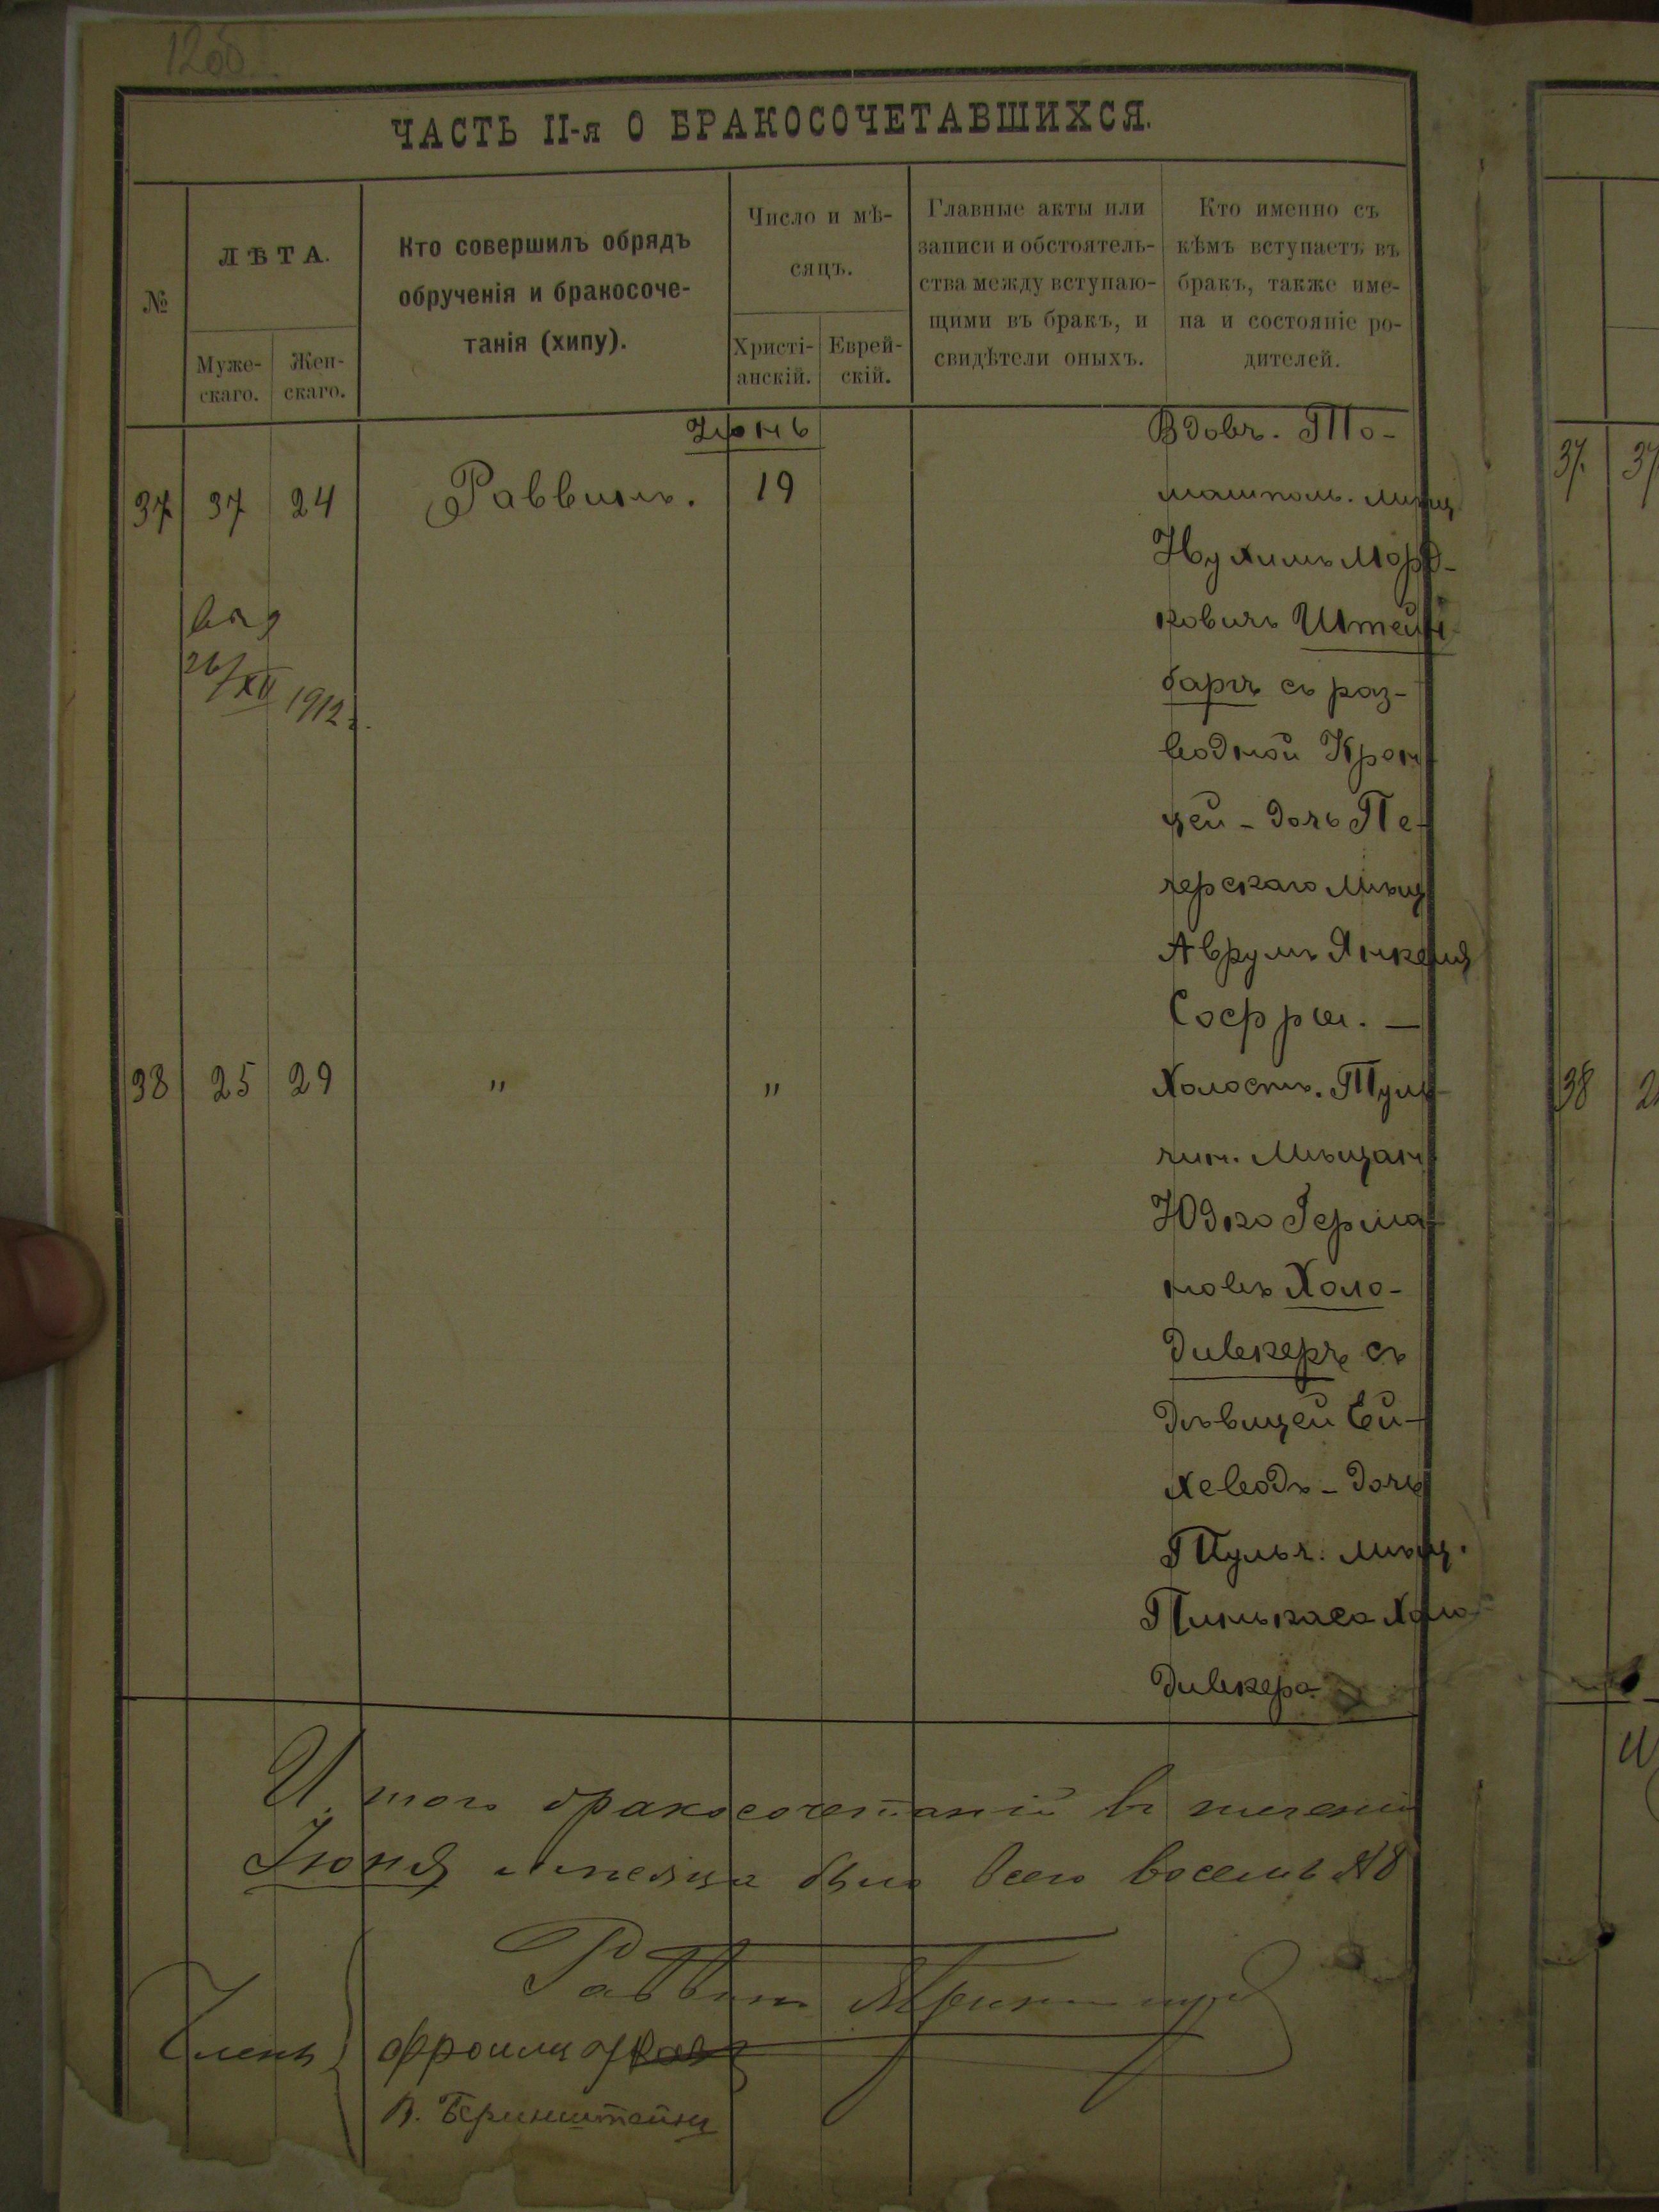 12об.
ЧАСТЬ II-я О БРАКОСОЧЕТАВШИХСЯ.
№
ЛѢТА.
Муже-
скаго.
Жен-
скаго.
Кто совершилъ обрядъ
обрученія и бракосоче-
танія (хипу).
Число и мѣ-
сяцъ.
Христі-
анскій.
Еврей-
скій.
Главные акты или
записи и обстоятель-
ства между вступаю-
щими въ бракъ, и
свидѣтели оныхъ.
Кто именно съ
кѣмъ вступаетъ въ
бракъ, также име-
на и состояніе ро-
дителей.
Іюнь
37 37 24 Раввинъ. 19
Вдовъ. То-
машполь. мѣщ
Нухимъ Морд-
ковичъ Штейн
баргъ съ раз-
водной Крон
цей - дочь Пе-
черскаго Мѣщ
Аврумъ Янкеля
Соффи. —
выд
26/XII 1912 г.
38 25 29 " "
Холостъ. Туль-
чин. Мѣщан
Юдко Герша-
новъ Холо-
дивкеръ съ
дѣвицей Ей-
хеводъ - дочь
Тульч. мѣщ.
Пинькаса Холо-
дивкера
Итого бракосочетаній въ теченіи
Іюня мѣсяца было всего восемь № 8
Раввинъ
Члены
Фроим
В. Беринштейнъ
37. 37
38 2
И